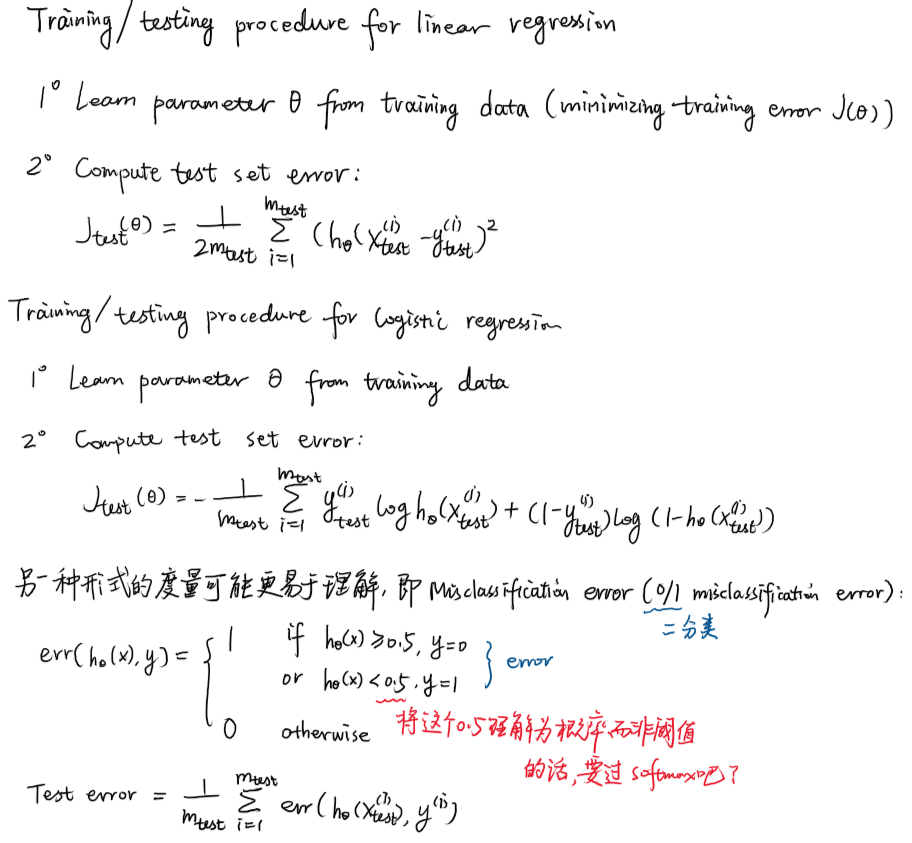 Training/testing procedure for linear regression
1° Learn parameter θ from training data (minimizing training error J(θ))
2° Compute test set error:
J_test(θ) = \frac{1}{2m_test} \sum_{i=1}^{m_test} (h_θ(x_test^{(i)} - y_test^{(i)})^2
Training/testing procedure for logistic regression
1° Learn parameter θ from training data
2° Compute test set error:
J_test(θ) = -\frac{1}{m_test} \sum_{i=1}^{m_test} y_test^{(i)} log h_θ(x_test^{(i)}) + (1-y_test^{(i)}) log (1-h_θ(x_test^{(i)}))
另一种形式的度量可能更易于理解, 即 Misclassification error (0/1 misclassification error):
二分类
err(h_θ(x), y) = { 1 if h_θ(x) ≥ 0.5, y=0
or h_θ(x) < 0.5, y=1 } error
0 otherwise
将这个0.5理解为概率而非阈值
的话, 要过 softmax吧?
Test error = \frac{1}{m_test} \sum_{i=1}^{m_test} err(h_θ(x_test^{(i)}), y^{(i)})